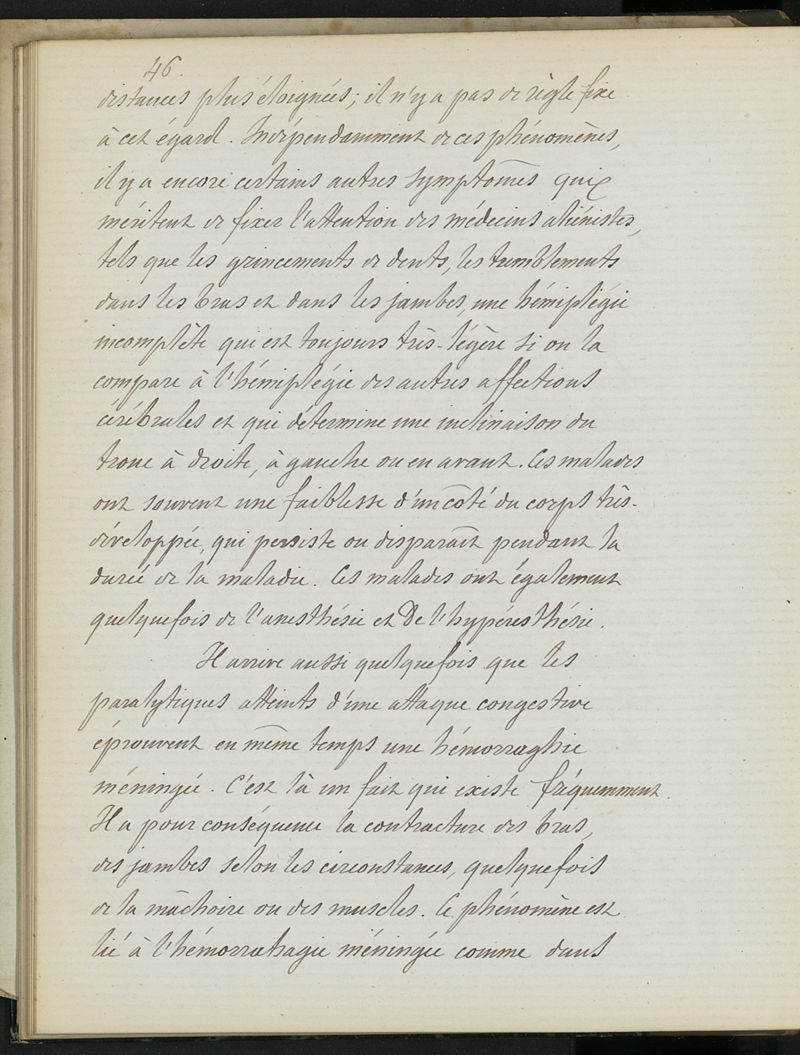 46.
distances plus éloignées; il n'y a pas de règle fixe
à cet égard. Indépendamment de ces phénomènes,
il y a encore certains autres symptômes qui
méritent de fixer l'attention des médecins aliénistes,
tels que les grincements de dents, les tremblements
dans les bras et dans les jambes, une hémiplégie
incomplète qui est toujours très-légère si on la
compare à l'hémiplégie des autres affections
cérébrales et qui détermine une inclinaison du
tronc à droite, à gauche ou en avant. Ces malades
ont souvent une faiblesse d'un côté du corps très-
développée, qui persiste ou disparaît pendant la
durée de la maladie. Ces malades ont également
quelquefois de l'anesthésie et De l'hypéresthésie.
Il arrive aussi quelquefois que les
paralytiques atteints d'une attaque congestive
éprouvent en même temps une hémorraghie
méningée. C'est là un fait qui existe fréquemment.
Il a pour conséquence la contracture des bras,
des jambes selon les circonstances, quelquefois
de la mâchoire ou des muscles. Ce phénomène est
lié à l'hémorrathagie méningée comme dans